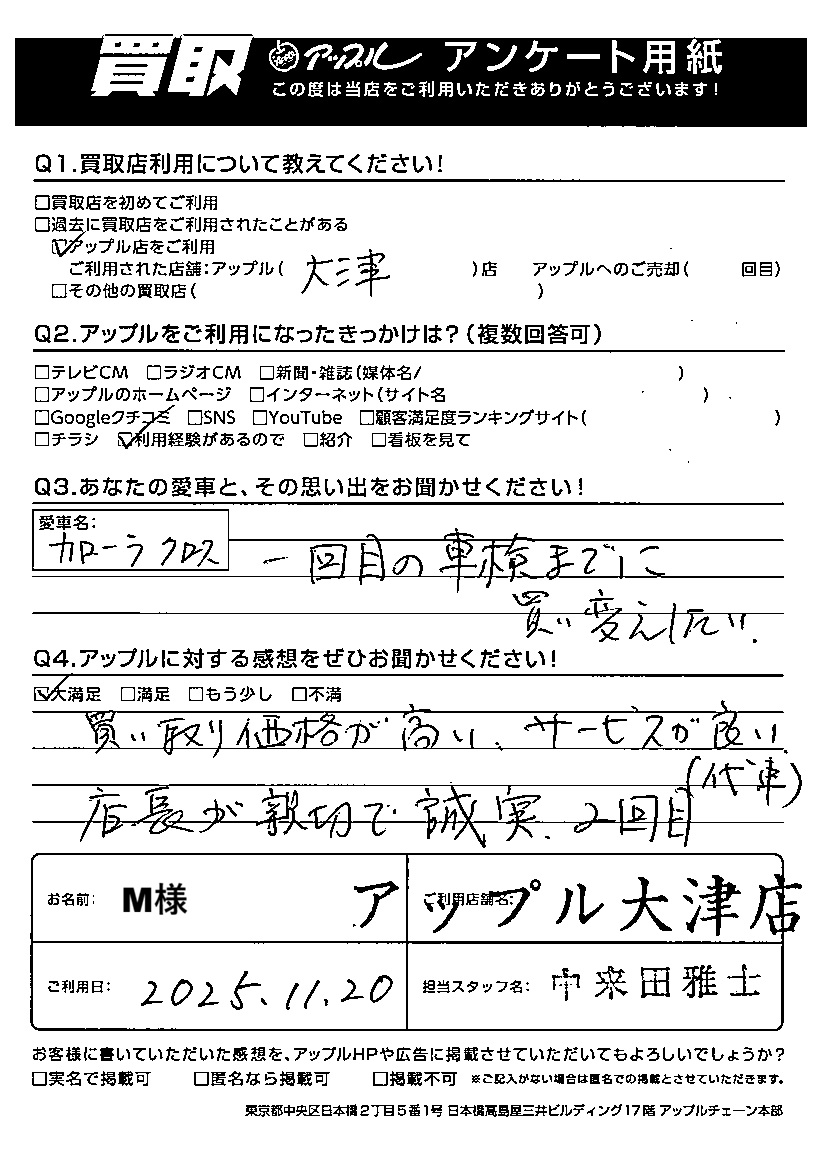 買取 アップル アンケート用紙
この度は当店をご利用いただきありがとうございます!
Q1.買取店利用について教えてください!
□買取店を初めてご利用
□過去に買取店をご利用されたことがある
☑アップル店をご利用
ご利用された店舗:アップル( 大津 )店 アップルへのご売却( 回目)
□その他の買取店( )
Q2.アップルをご利用になったきっかけは?(複数回答可)
□テレビCM □ラジオCM □新聞・雑誌(媒体名/ )
□アップルのホームページ □インターネット(サイト名 )
□Googleクチコミ □SNS □YouTube □顧客満足度ランキングサイト( )
□チラシ ☑利用経験があるので □紹介 □看板を見て
Q3.あなたの愛車と、その思い出をお聞かせください!
愛車名:
カローラクロス 一回目の車検までに
買い変えしたい.
Q4.アップルに対する感想をぜひお聞かせください!
☑大満足 □満足 □もう少し □不満
買い取り価格が高い、サービスが良い
(代車)
店長が親切で誠実、2回目
お名前: M様 ご利用店舗名: アップル大津店
ご利用日: 2025.11.20 担当スタッフ名: 中来田雅士
お客様に書いていただいた感想を、アップルHPや広告に掲載させていただいてもよろしいでしょうか?
□実名で掲載可 □匿名なら掲載可 □掲載不可 ※ご記入がない場合は匿名での掲載とさせていただきます。
東京都中央区日本橋2丁目5番1号 日本橋髙島屋三井ビルディング17階 アップルチェーン本部